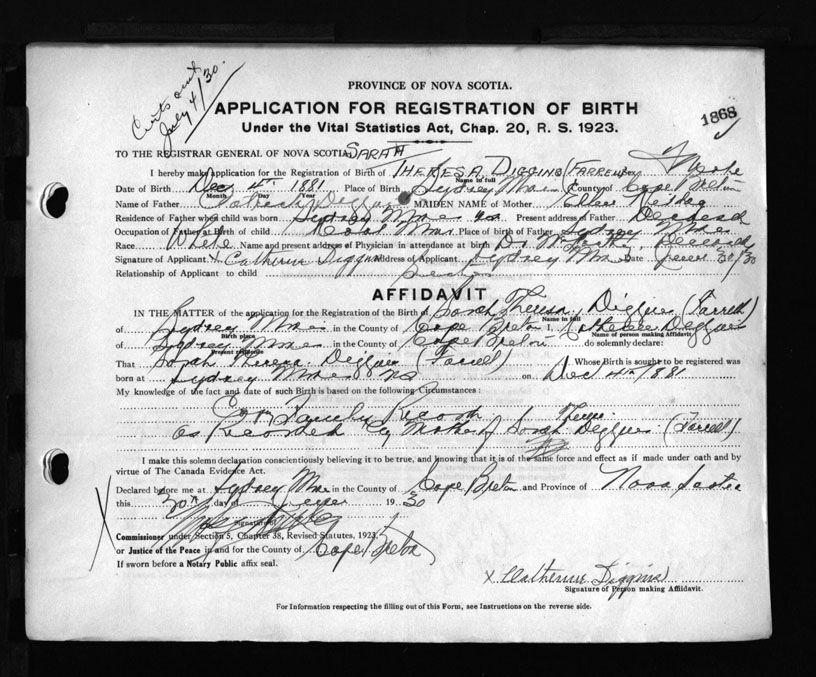 Certs out
July 4/30.
PROVINCE OF NOVA SCOTIA.
APPLICATION FOR REGISTRATION OF BIRTH
Under the Vital Statistics Act, Chap. 20, R. S. 1923.
1868
TO THE REGISTRAR GENERAL OF NOVA SCOTIA SARAH
I hereby make application for the Registration of Birth of THERESA DIGGINS (FARRELL)
Name in full
Date of Birth Dec 4th 1881 Place of Birth Sydney Mines County of Cape Breton
Month Day Year
Name of Father Patrick Diggins MAIDEN NAME of Mother Ellen
Residence of Father when child was born Sydney Mines NS Present address of Father Deceased
Occupation of Father at Birth of child Coal Place of birth of Father Sydney Mines
Race White Name and present address of Physician in attendance at birth Dr Deceased
Signature of Applicant x Catherine Diggins Address of Applicant Sydney Mines Date June 30/30
Relationship of Applicant to child
AFFIDAVIT
IN THE MATTER of the application for the Registration of the Birth of Sarah Theresa Diggins (Farrell)
Name in full
of Sydney Mines in the County of Cape Breton I, Catherine Diggins
Birth place Name of person making Affidavit
of Sydney Mines in the County of Cape Breton do solemnly declare:
Present residence
That Sarah Theresa Diggins (Farrell) Whose Birth is sought to be registered was
born at Sydney Mines NS on Dec 4th 1881
My knowledge of the fact and date of such Birth is based on the following Circumstances:
Family Record
Theresa
as Recorded by Mother of Sarah Diggins (Farrell)
I make this solemn declaration conscientiously believing it to be true, and knowing that it is of the same force and effect as if made under oath and by
virtue of The Canada Evidence Act.
Declared before me at Sydney Mines in the County of Cape Breton and Province of Nova Scotia
this 30th day of June 1930
Signature of
Commissioner under Section 5, Chapter 38, Revised Statutes, 1923,
or Justice of the Peace in and for the County of Cape Breton
If sworn before a Notary Public affix seal.
x Catherine Diggins
Signature of Person making Affidavit.
For Information respecting the filling out of this Form, see Instructions on the reverse side.